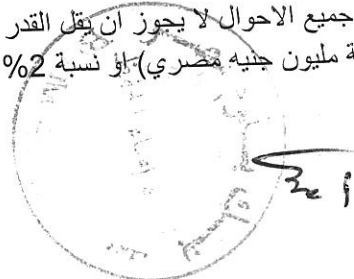 جميع الاحوال لا يجوز ان يقل القدر
ة مليون جنيه مصري) او نسبة 2%